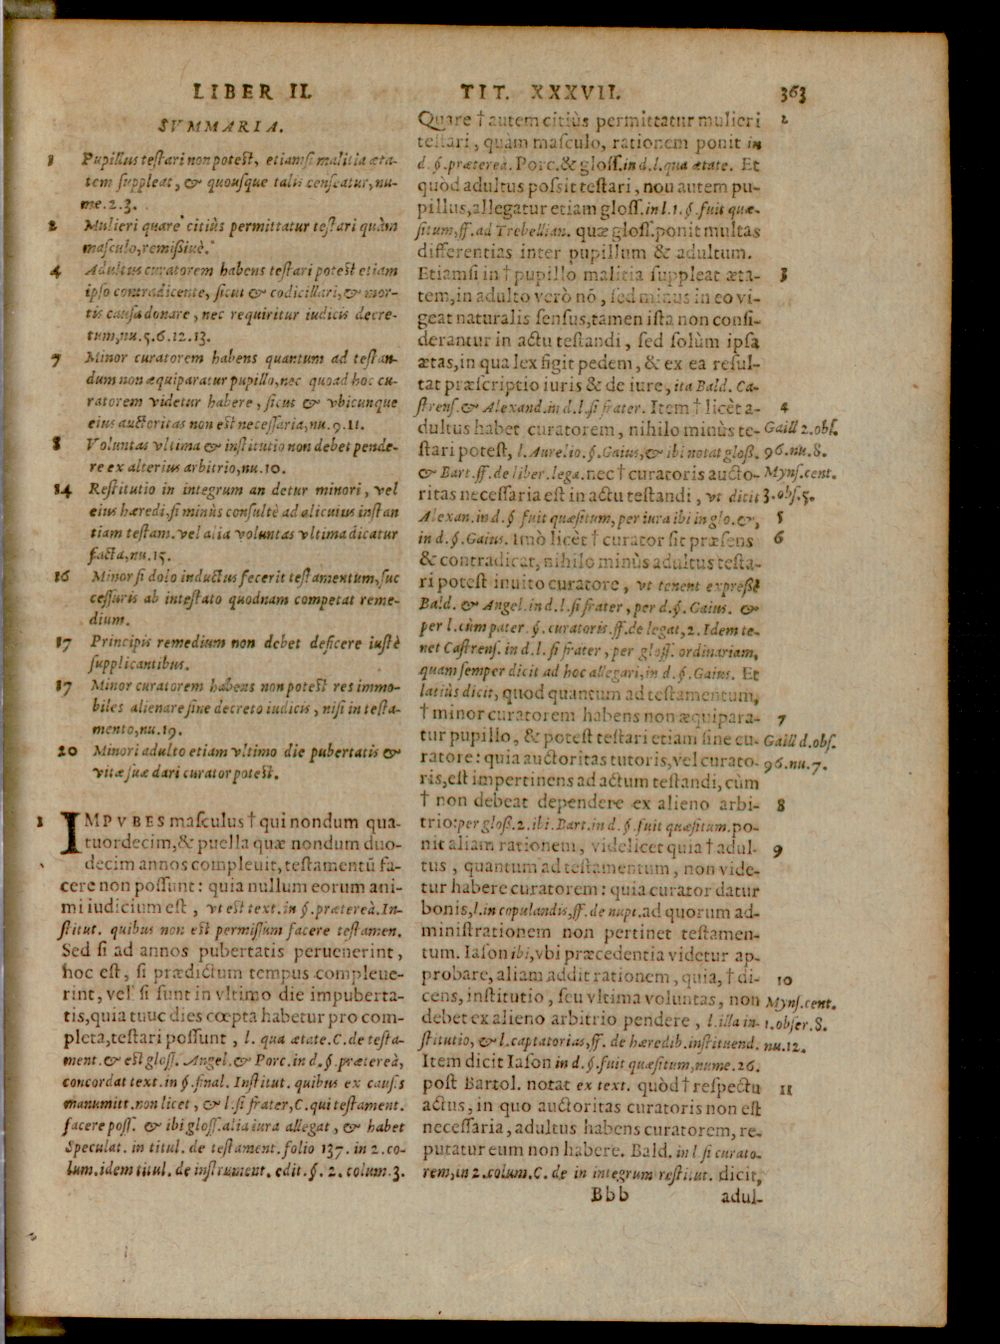 LIBER II. TIT. XXXVII. 363
SVMMARIA.
1 Pupillus testari non potest, etiamsi malitia æta-
tem suppleat, & quousque talis censeatur, nu-
me.2.3.
2 Mulieri quare citiùs permittatur testari quàm
masculo, remissiuè.
4 Adultus curatorem habens testari potest etiam
ipso contradicente, sicut & codicillari, & mor-
tis causa donare, nec requiritur iudicis decre-
tum, nu.5.6.12.13.
7 Minor curatorem habens quantum ad testan-
dum non æquiparatur pupillo, nec quoad hoc cu-
ratorem videtur habere, sicut & vbicunque
eius auctoritas non est necessaria, nu.9.11.
8 Voluntas vltima & institutio non debet pende-
re ex alterius arbitrio, nu.10.
14 Restitutio in integrum an detur minori, vel
eius hæredi, si minùs consultè ad alicuius instan
tiam testam. vel alia voluntas vltima dicatur
facta, nu.15.
16 Minor si dolo inductus fecerit testamentum, suc
cessuris ab intestato quodnam competat reme-
dium.
17 Principis remedium non debet deficere iustè
supplicantibus.
17 Minor curatorem habens non potest res immo-
biles alienare sine decreto iudicis, nisi in testa-
mento, nu.19.
20 Minori adulto etiam vltimo die pubertatis &
vitæ suæ dari curator potest.
1 IMPVBES masculus† qui nondum qua-
tuordecim, & puella quæ nondum duo-
decim annos compleuit, testamentū fa-
cere non possunt: quia nullum eorum ani-
mi iudicium est, vt est text. in §. prætereà. In-
stitut. quibus non est permissum facere testamen.
Sed si ad annos pubertatis peruenerint,
hoc est, si prædictum tempus compleue-
rint, vel si sunt in vltimo die impuberta-
tis, quia tunc dies cœpta habetur pro com-
pleta, testari possunt, l. qua ætate. C. de testa-
ment. & est gloss. Angel. & Porc. in d. §. prætereà,
concordat text. in §. final. Institut. quibus ex causis
manumitt. non licet, & l. si frater, C. qui testament.
facere poss. & ibi gloss. alia iura allegat, & habet
Speculat. in titul. de testament. folio 137. in 2. co-
lum. idem titul. de instrument. edit. §. 2. colum. 3.
Quare † autem citiùs permittatur mulieri 2
testari, quàm masculo, rationem ponit in
d. §. prætereà. Porc. & gloss. in d. l. qua ætate. Et
quòd adultus possit testari, non autem pu-
pillus, allegatur etiam gloss. in l. 1. §. fuit quæ-
situm, ff. ad Trebellian. quæ gloss. ponit multas
differentias inter pupillum & adultum.
Etiamsi in † pupillo malitia suppleat æta- 3
tem, in adulto verò nō, sed minus in eo vi-
geat naturalis sensus, tamen ista non consi-
derantur in actu testandi, sed solùm ipsa
ætas, in qua lex figit pedem, & ex ea resul-
tat præscriptio iuris & de iure, ita Bald. Ca-
strens. & Alexand. in d. l. si frater. Item † licèt a- 4
dultus habet curatorem, nihilo minùs te- Gaill 2. obs.
stari potest, l. Aurelio. §. Gaius, & ibi notat gloss. 96. nu. 8.
& Bart. ff. de liber. lega. nec † curatoris aucto- Myns. cent.
ritas necessaria est in actu testandi, vt dicit 3. obs. 5.
Alexan. in d. § fuit quæsitum, per iura ibi in glo. &, 5
in d. §. Gaius. Imò licèt † curator sit præsens 6
& contradicat, nihilo minùs adultus testa-
ri potest inuito curatore, vt tenent expressè
Bald. & Angel. in d. l. si frater, per d. §. Gaius. &
per l. cùm pater. §. curatoris. ff. de legat, 2. Idem te-
net Castrens. in d. l. si frater, per gloss. ordinariam,
quam semper dicit ad hoc allegari, in d. §. Gaius. Et
latiùs dicit, quod quantum ad testamentum,
† minor curatorem habens non æquipara- 7
tur pupillo, & potest testari etiam sine cu- Gaill d. obs.
ratore: quia auctoritas tutoris, vel curato- 96. nu. 7.
ris, est impertinens ad actum testandi, cùm
† non debeat dependere ex alieno arbi- 8
trio: per gloss. 2. ibi. Bart. in d. §. fuit quæsitum. po-
nit aliam rationem, videlicet quia † adul- 9
tus, quantum ad testamentum, non vide-
tur habere curatorem: quia curator datur
bonis, l. in copulandis, ff. de nupt. ad quorum ad-
ministrationem non pertinet testamen-
tum. Iason ibi, vbi præcedentia videtur ap-
probare, aliam addit rationem, quia, † di- 10
cens, institutio, seu vltima voluntas, non Myns. cent.
debet ex alieno arbitrio pendere, l. illa in- 1. obser. 8.
stitutio, & l. captatorias, ff. de hæredib. instituend. nu. 12.
Item dicit Iason in d. §. fuit quæsitum, nume. 26.
post Bartol. notat ex text. quòd † respectu 11
actus, in quo auctoritas curatoris non est
necessaria, adultus habens curatorem, re-
putatur eum non habere. Bald. in l. si curato-
rem, in 2. colum. C. de in integrum restitut. dicit,
Bbb adul-